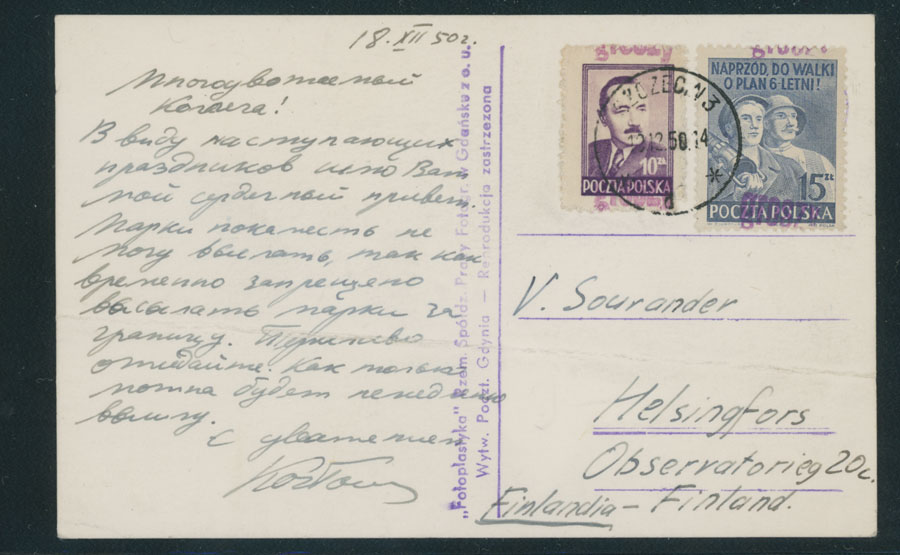 18.XII 50г.
Многоуважаемый
Коллега!
В виду наступающих
праздников шлю Вам
мой сердечный привет.
Марки покаместь не
могу выслать, так как
временно запрещено
высылать марки за
границу. Терпеливо
ожидайте. Как только
можна будет немедленно
вышлю.
С уважением
„Fotoplastyka" Rzem. Spółdz. Pracy Fotogr. w Gdańsku z o. u.
Wytw. Poczt. Gdynia — Reprodukcja zastrzeżona
groszy
10 ZŁ
POCZTA POLSKA
groszy
NAPRZÓD, DO WALKI
O PLAN 6-LETNI!
15 ZŁ
POCZTA POLSKA
groszy
N 3
12.50.14
d
V. Sourander
Helsingfors
Observatorieg 20c.
Finlandia – Finland.